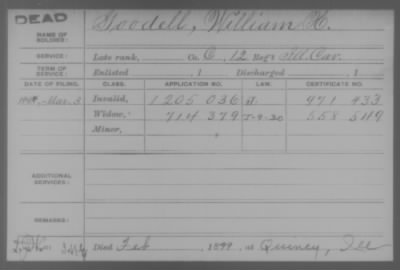 DEAD
NAME OF SOLDIER: Goodell, William H.
SERVICE: Late rank, Co. C, 12 Reg't Ill. Cav.
TERM OF SERVICE: Enlisted , 1 Discharged , 1
DATE OF FILING. CLASS. APPLICATION NO. LAW. CERTIFICATE NO.
Mar. 3 Invalid, 1205 036 971 433
Widow, 714 379 J-9-30 558 549
Minor,
ADDITIONAL SERVICES:
REMARKS:
Died Feb , 1899, at Quincy, Ill